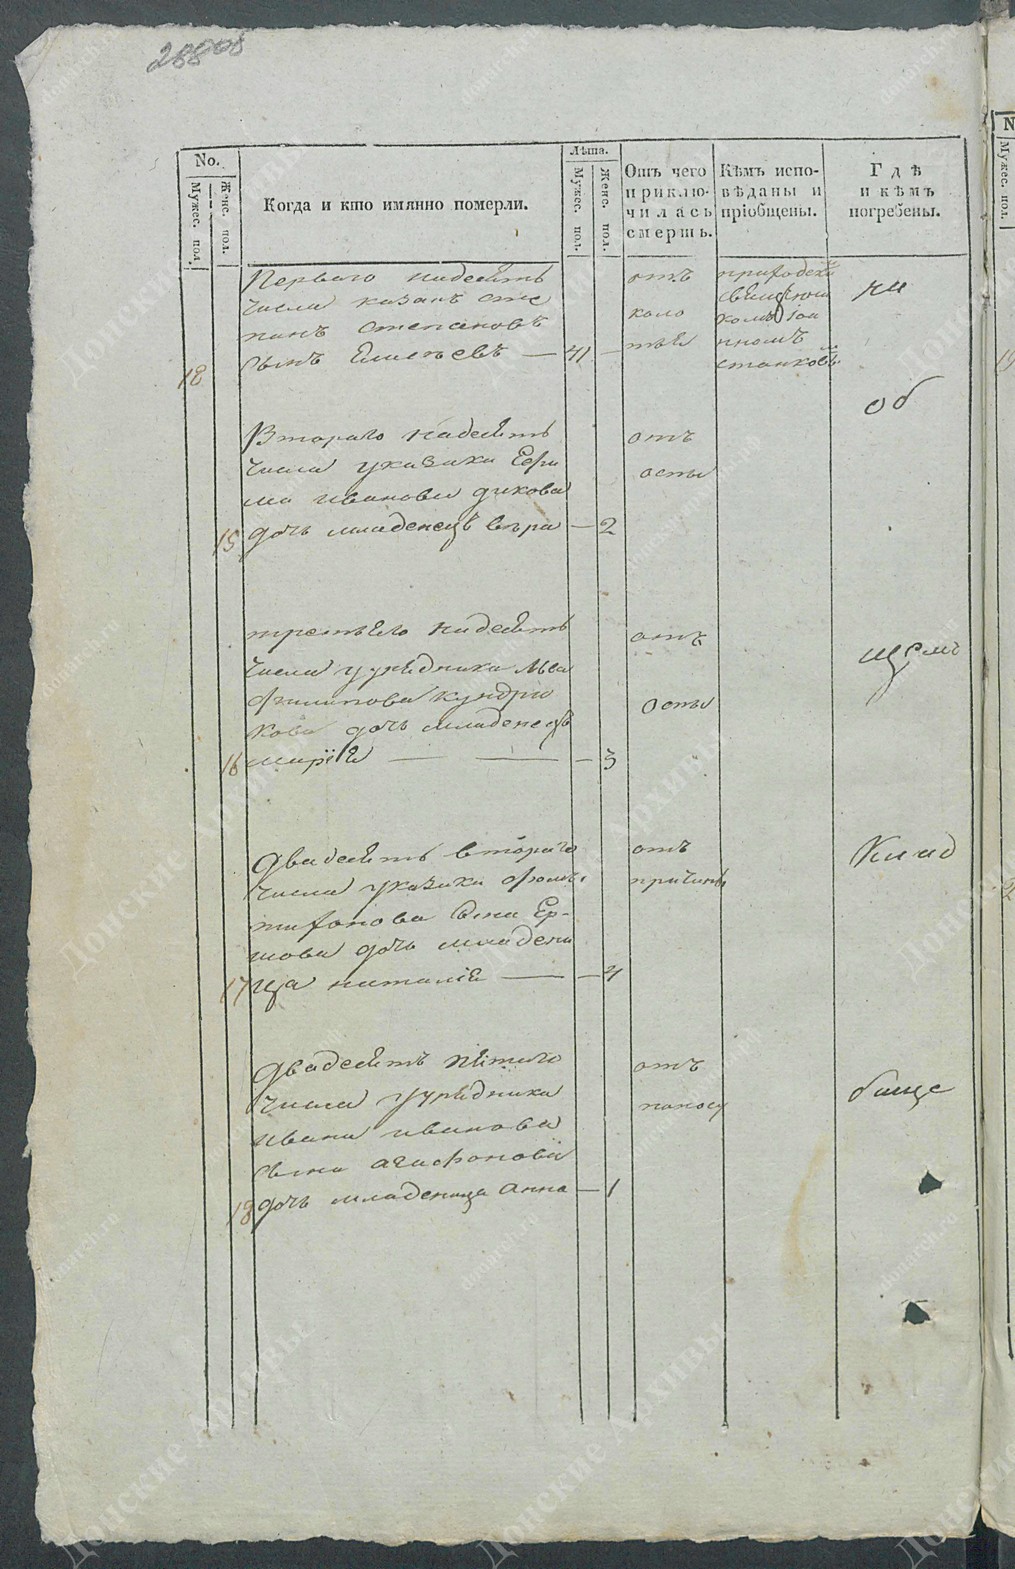 No.
Мужес. пол.
Женс. пол.
Когда и кто имянно померли.
Лѣта.
Мужес. пол.
Женс. пол.
Отъ чего
приклю-
чилась
смерть.
Кѣмъ испо-
вѣданы и
прiобщены.
Гдѣ
и кѣмъ
погребены.
Первого надесять
числа казакъ сте
панъ степановъ
18 сынъ — 41
отъ
коло
тья
приходски
священни
комъ Iоа
нномъ
на
Втораго надесять
числа указика Ефи
ма иванова дикова
15 дочь младенецъ вѣра — 2
отъ
оспы
об
третьяго надесять
числа урядника льва
филипова кундрю
кова дочь младенецъ
16 марiя — 3
отъ
оспы
щемъ
двадесять втораго
числа указика
тифонова сына Ер-
шова дочь младени
17 ца наталiя — 4
отъ
причины
Клад
двадесять пятого
числа урядника
ивана иванова
сына агафонова
18 дочь младеница анна — 1
отъ
поносу
бище